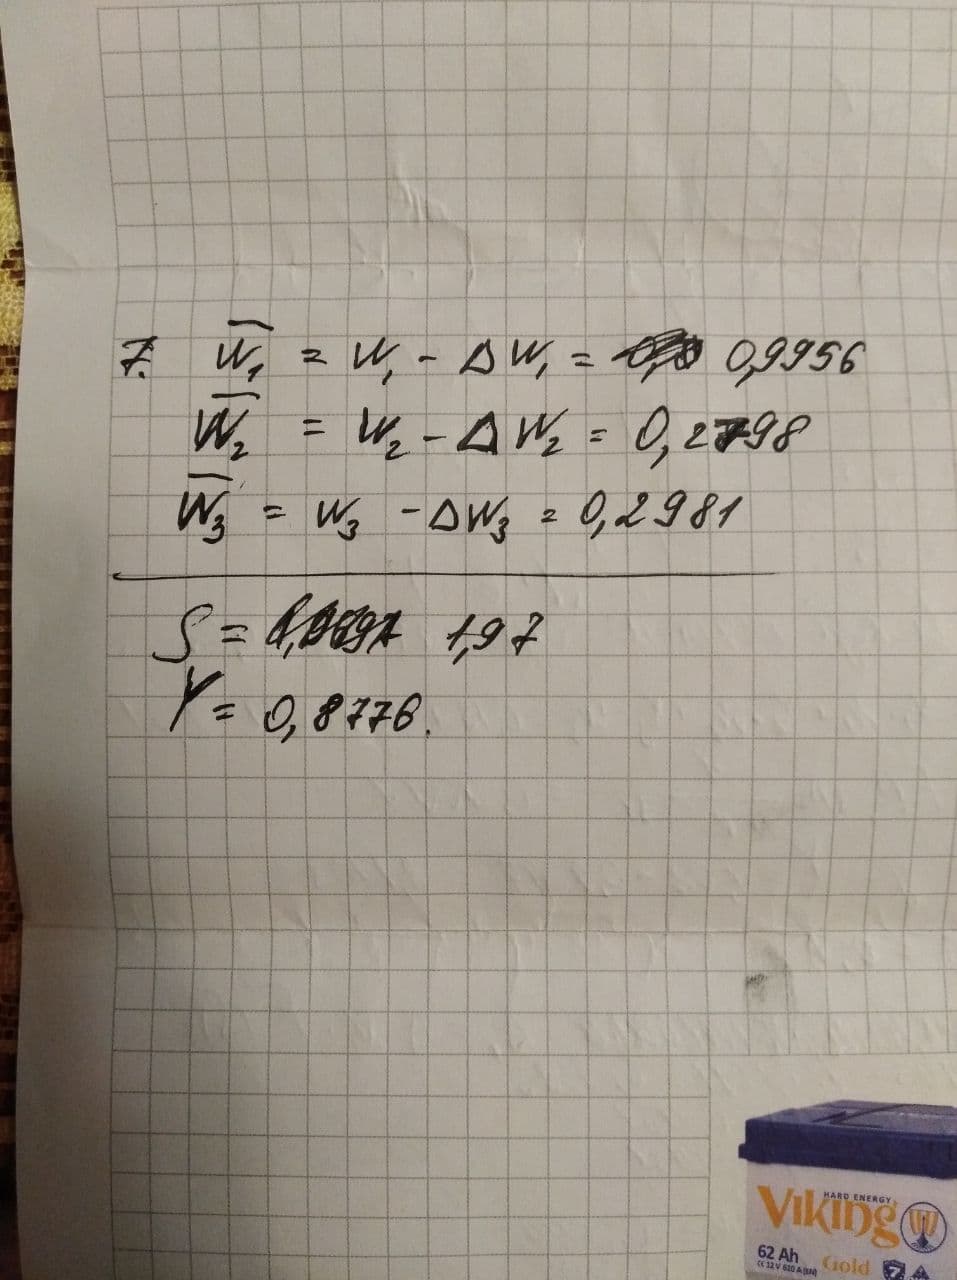 7. W̅₁ = W₁ - ΔW₁ = 0,9956
W̅₂ = W₂ - ΔW₂ = 0,2798
W̅₃ = W₃ - ΔW₃ = 0,2981
S = 1,97
Y = 0,8776.
HARD ENERGY
Viking
62 Ah
Gold